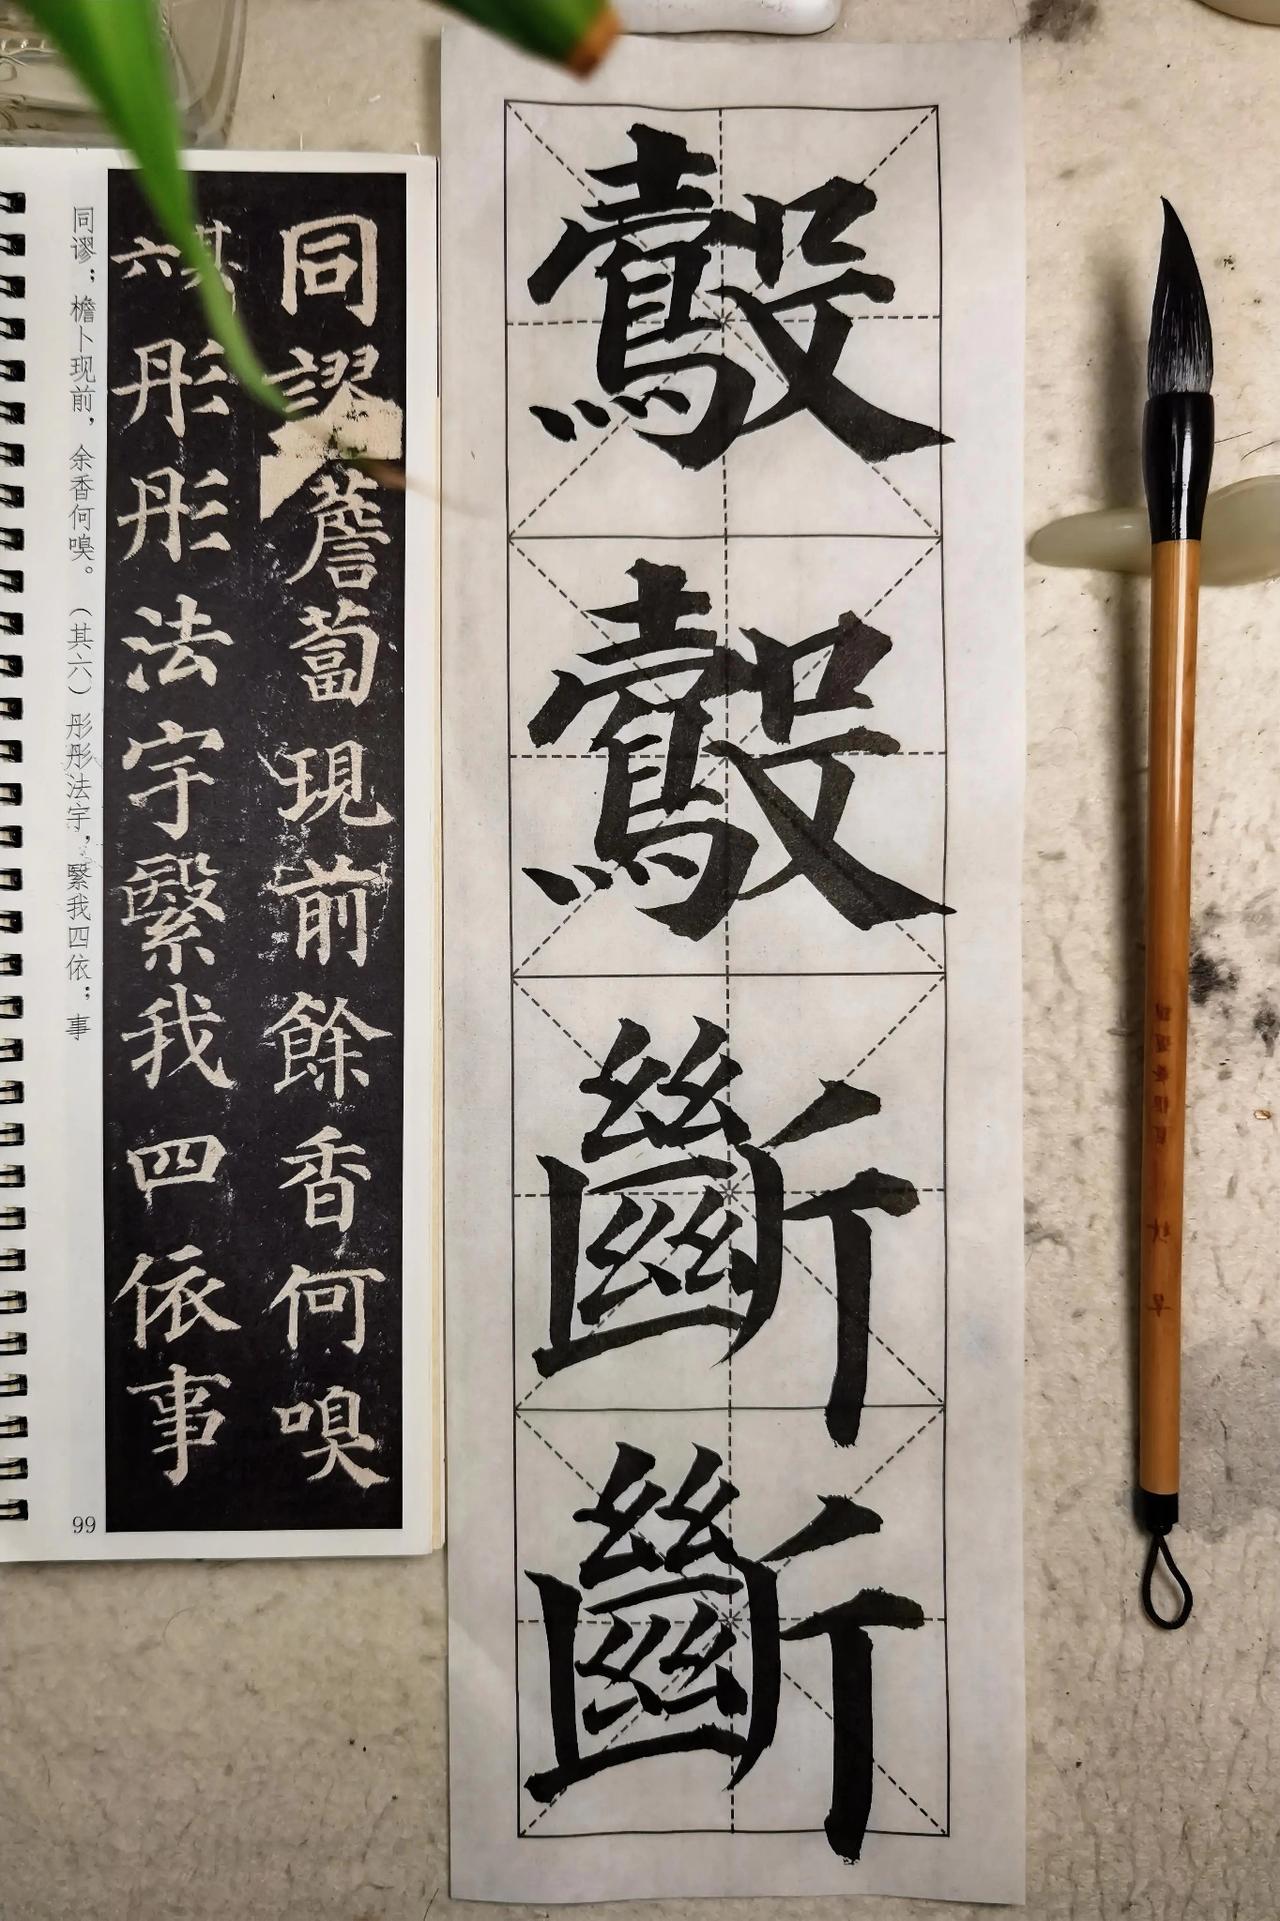 同謬薝蔔現前餘香何嗅
其六彤彤法宇繄我四依事
同谬；檐卜现前，余香何嗅。（其六）彤彤法宇，繄我四依；事
99
鷇鷇斷斷